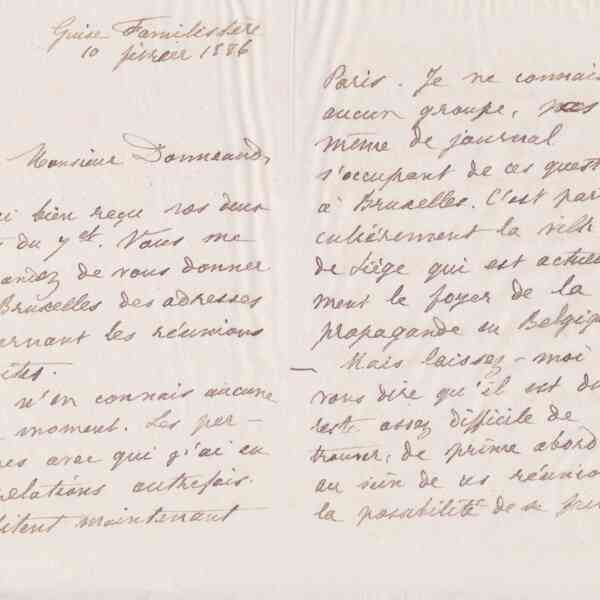 Guise Familistère
10 février 1886
Monsieur Donneaud,
ai bien reçu vos deux
du 7 ct. Vous me
andez de vous donner
Bruxelles des adresses
ernant les réunions
ites.
n'en connais aucune
moment. Les per-
es avec qui j'ai eu
relations autrefois
bitent maintenant
Paris. Je ne connais
aucun groupe, pas
même de journal
s'occupant de ces quest
à Bruxelles. C'est par
culièrement la ville
de Liège qui est actuel
ment le foyer de la
propagande en Belgique
— Mais laissez-moi
vous dire qu'il est du
reste assez difficile de
trouver, de prime abord
au sein de ces réunion
la possibilité de se